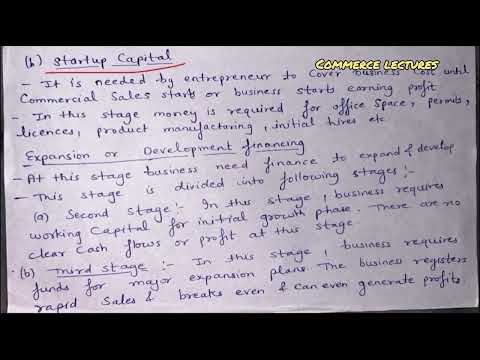 COMMERCE LECTURES
(b) Startup Capital
- It is needed by entrepreneur to cover business cost until
Commercial Sales starts or business starts earning profit
- In this stage money is required for office space, permits,
licences, product manufactaring, initial hires etc
Expansion or Development financing
- At this stage business need finance to expand & develop
- This stage is divided into following stages :-
(a) Second stage :- In this stage, business requires
working Capital for initial growth phase. There are no
clear Cash flows or profit at this stage
(b) Third stage :- In this stage, business requires
funds for major expansion plans. The business registers
rapid Sales & breaks even & can even generate profits.